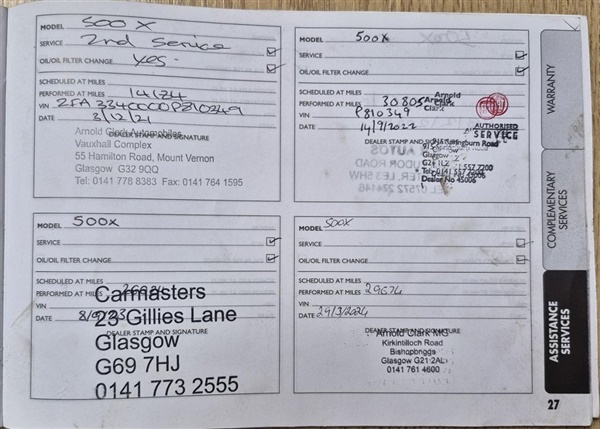 MODEL 500X
SERVICE 2nd Service
OIL/OIL FILTER CHANGE Yes.
SCHEDULED AT MILES
PERFORMED AT MILES
VIN
DATE 3/12/21
DEALER STAMP AND SIGNATURE
Arnold Clark Automobiles
Vauxhall Complex
55 Hamilton Road, Mount Vernon
Glasgow G32 9QQ
Tel: 0141 778 8383 Fax: 0141 764 1595
MODEL 500X
SERVICE
OIL/OIL FILTER CHANGE
SCHEDULED AT MILES
PERFORMED AT MILES 30805
Arnold
Clark
VIN P810349
DATE 14/9/2022
AUTHORISED
SERVICE
DEALER STAMP AND SIGNATURE
Glasgow
Tel: 0141 557 7200
Dealer No 45006
MODEL 500X
SERVICE
OIL/OIL FILTER CHANGE
SCHEDULED AT MILES
PERFORMED AT MILES
VIN
DATE
DEALER STAMP AND SIGNATURE
Carmasters
23 Gillies Lane
Glasgow
G69 7HJ
0141 773 2555
MODEL 500X
SERVICE
OIL/OIL FILTER CHANGE
SCHEDULED AT MILES
PERFORMED AT MILES 29674
VIN
DATE 29/3/2024
DEALER STAMP AND SIGNATURE
Arnold Clark MG
Kirkintilloch Road
Bishopbriggs
Glasgow G21 2AL
0141 761 4600
WARRANTY
COMPLEMENTARY
SERVICES
ASSISTANCE
SERVICES
27